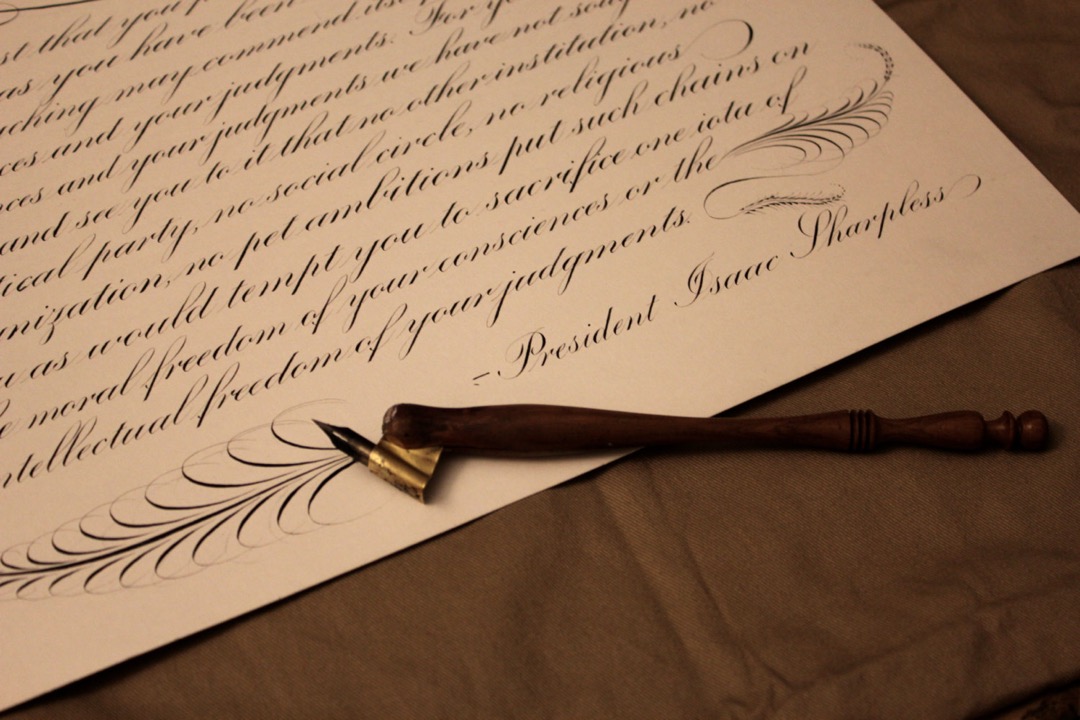 that you
as you have been
may commend itse
and your judgments. For yo
and your judgments we have not soug
and see you to it that no other institution, no
tical party, no social circle, no religious
nization, no pet ambitions put such chains on
as would tempt you to sacrifice one iota of
moral freedom of your consciences or the
ntellectual freedom of your judgments.
-President Isaac Sharpless